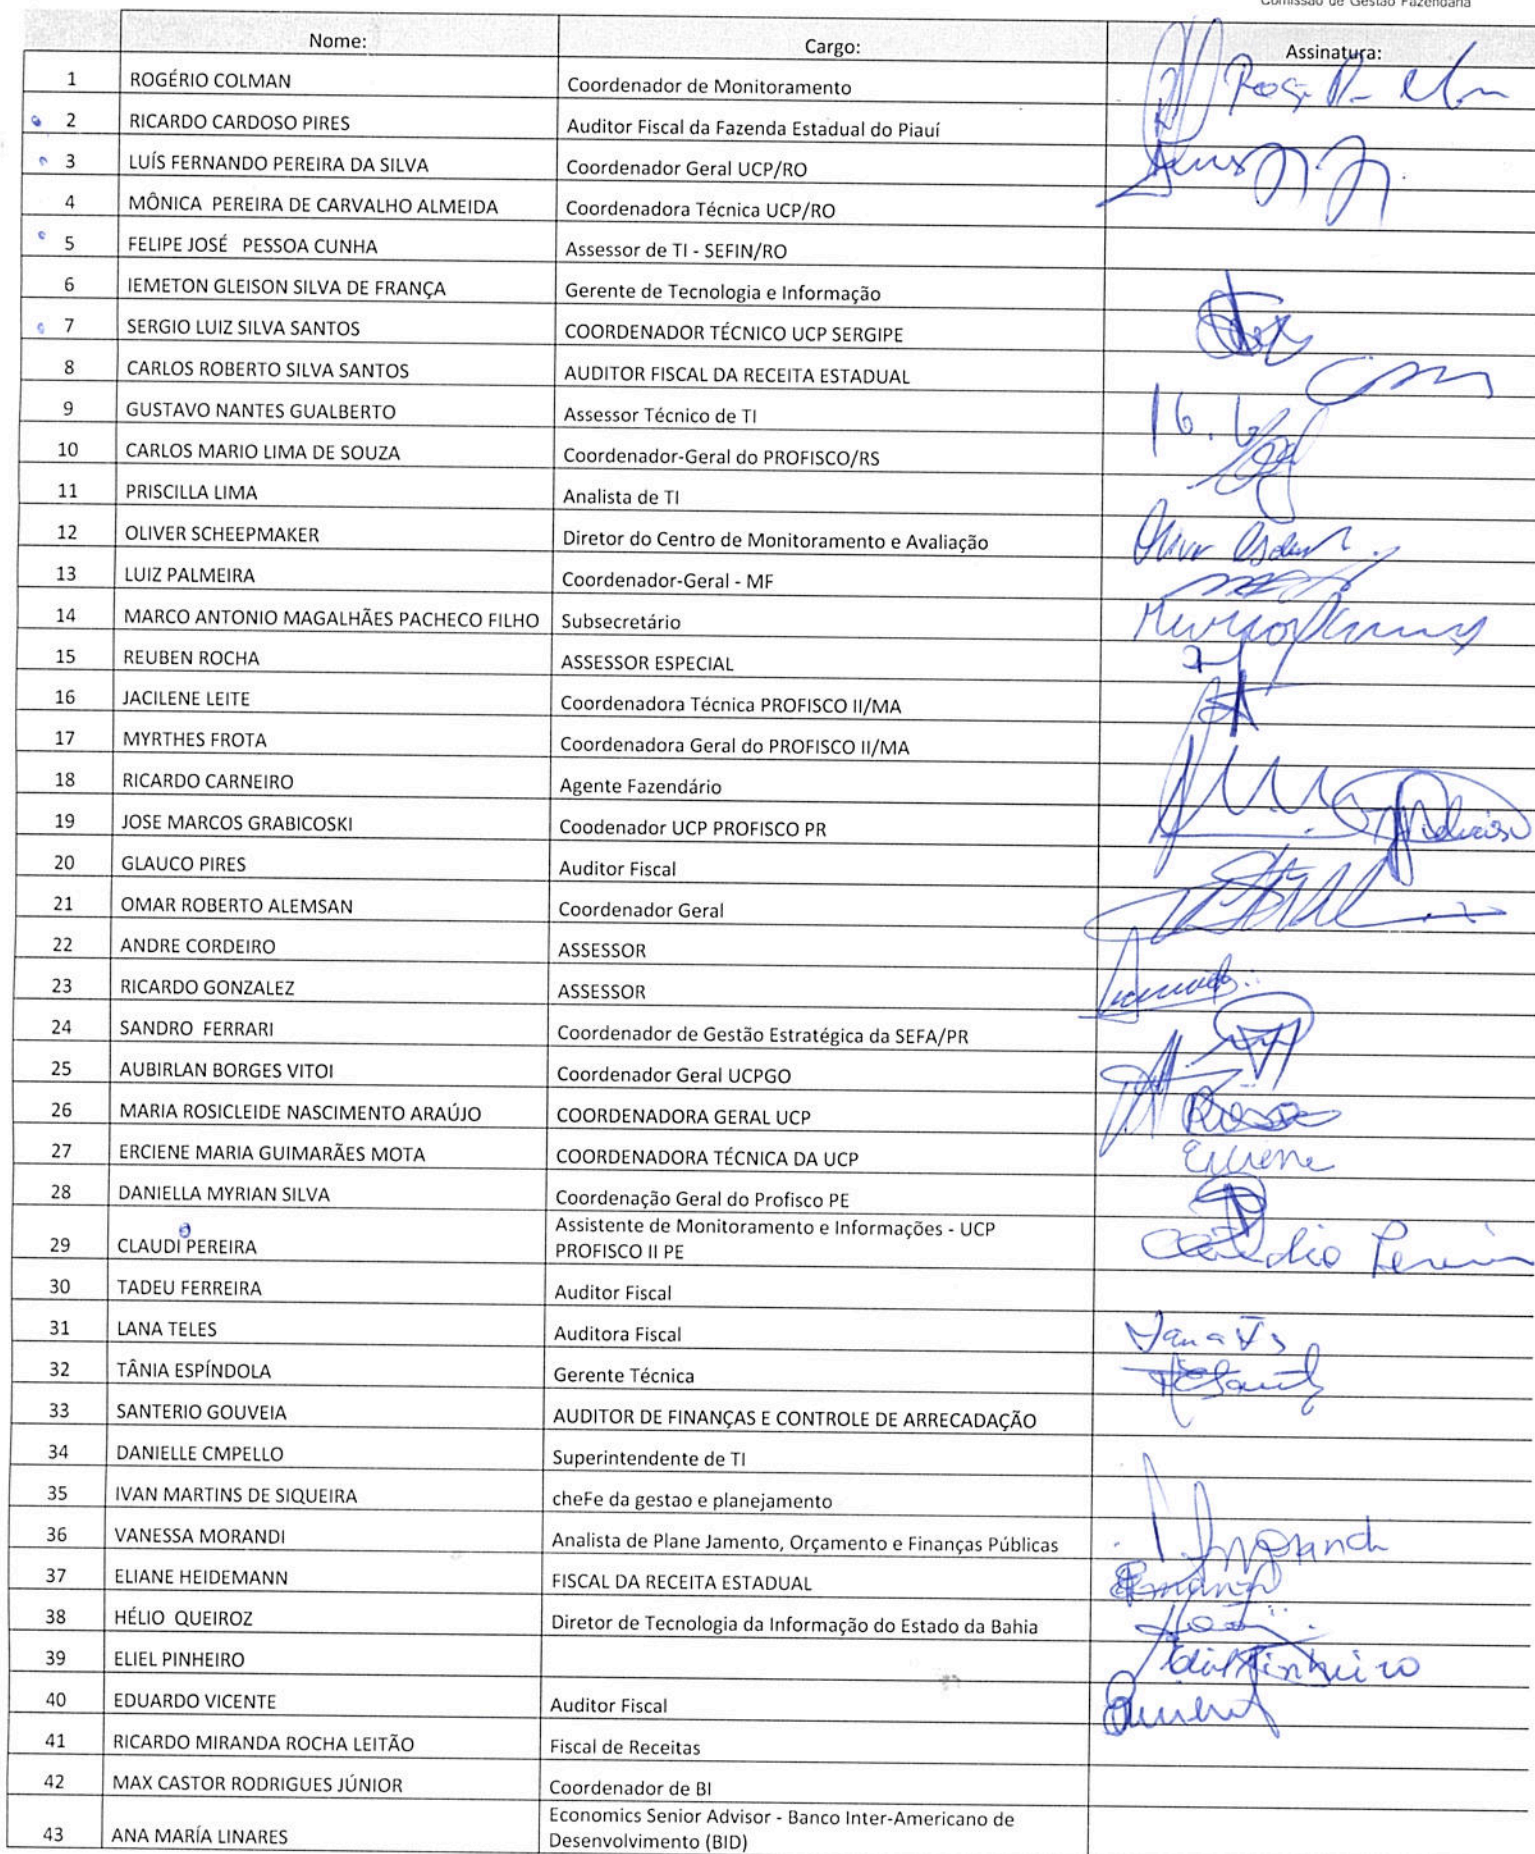 Comissão de Gestão Fazendária
Nome: Cargo: Assinatura:
1 ROGÉRIO COLMAN Coordenador de Monitoramento
2 RICARDO CARDOSO PIRES Auditor Fiscal da Fazenda Estadual do Piauí
3 LUÍS FERNANDO PEREIRA DA SILVA Coordenador Geral UCP/RO
4 MÔNICA PEREIRA DE CARVALHO ALMEIDA Coordenadora Técnica UCP/RO
5 FELIPE JOSÉ PESSOA CUNHA Assessor de TI - SEFIN/RO
6 IEMETON GLEISON SILVA DE FRANÇA Gerente de Tecnologia e Informação
7 SERGIO LUIZ SILVA SANTOS COORDENADOR TÉCNICO UCP SERGIPE
8 CARLOS ROBERTO SILVA SANTOS AUDITOR FISCAL DA RECEITA ESTADUAL
9 GUSTAVO NANTES GUALBERTO Assessor Técnico de TI
10 CARLOS MARIO LIMA DE SOUZA Coordenador-Geral do PROFISCO/RS
11 PRISCILLA LIMA Analista de TI
12 OLIVER SCHEEPMAKER Diretor do Centro de Monitoramento e Avaliação
13 LUIZ PALMEIRA Coordenador-Geral - MF
14 MARCO ANTONIO MAGALHÃES PACHECO FILHO Subsecretário
15 REUBEN ROCHA ASSESSOR ESPECIAL
16 JACILENE LEITE Coordenadora Técnica PROFISCO II/MA
17 MYRTHES FROTA Coordenadora Geral do PROFISCO II/MA
18 RICARDO CARNEIRO Agente Fazendário
19 JOSE MARCOS GRABICOSKI Coodenador UCP PROFISCO PR
20 GLAUCO PIRES Auditor Fiscal
21 OMAR ROBERTO ALEMSAN Coordenador Geral
22 ANDRE CORDEIRO ASSESSOR
23 RICARDO GONZALEZ ASSESSOR
24 SANDRO FERRARI Coordenador de Gestão Estratégica da SEFA/PR
25 AUBIRLAN BORGES VITOI Coordenador Geral UCPGO
26 MARIA ROSICLEIDE NASCIMENTO ARAÚJO COORDENADORA GERAL UCP
27 ERCIENE MARIA GUIMARÃES MOTA COORDENADORA TÉCNICA DA UCP Erciene
28 DANIELLA MYRIAN SILVA Coordenação Geral do Profisco PE
29 CLAUDI PEREIRA Assistente de Monitoramento e Informações - UCP
PROFISCO II PE Claudio Pereira
30 TADEU FERREIRA Auditor Fiscal
31 LANA TELES Auditora Fiscal
32 TÂNIA ESPÍNDOLA Gerente Técnica
33 SANTERIO GOUVEIA AUDITOR DE FINANÇAS E CONTROLE DE ARRECADAÇÃO
34 DANIELLE CMPELLO Superintendente de TI
35 IVAN MARTINS DE SIQUEIRA cheFe da gestao e planejamento
36 VANESSA MORANDI Analista de Plane Jamento, Orçamento e Finanças Públicas
37 ELIANE HEIDEMANN FISCAL DA RECEITA ESTADUAL
38 HÉLIO QUEIROZ Diretor de Tecnologia da Informação do Estado da Bahia
39 ELIEL PINHEIRO Eliel Pinheiro
40 EDUARDO VICENTE Auditor Fiscal
41 RICARDO MIRANDA ROCHA LEITÃO Fiscal de Receitas
42 MAX CASTOR RODRIGUES JÚNIOR Coordenador de BI
43 ANA MARÍA LINARES Economics Senior Advisor - Banco Inter-Americano de
Desenvolvimento (BID)